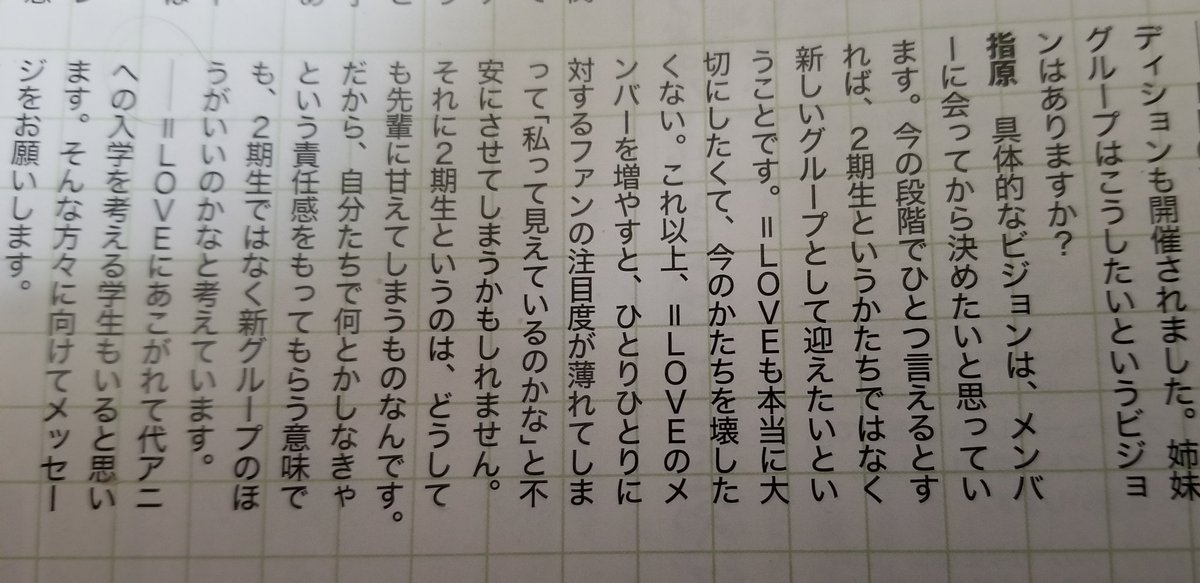 ディションも開催されました。姉妹
グループはこうしたいというビジョ
ンはありますか？
指原　具体的なビジョンは、メンバ
ーに会ってから決めたいと思ってい
ます。今の段階でひとつ言えるとす
れば、2期生というかたちではなく
新しいグループとして迎えたいとい
うことです。＝LOVEも本当に大
切にしたくて、今のかたちを壊した
くない。これ以上、＝LOVEのメ
ンバーを増やすと、ひとりひとりに
対するファンの注目度が薄れてしま
って「私って見えているのかな」と不
安にさせてしまうかもしれません。
それに2期生というのは、どうして
も先輩に甘えてしまうものなんです。
だから、自分たちで何とかしなきゃ
という責任感をもってもらう意味で
も、2期生ではなく新グループのほ
うがいいのかなと考えています。
――＝LOVEにあこがれて代アニ
への入学を考える学生もいると思い
ます。そんな方々に向けてメッセー
ジをお願いします。